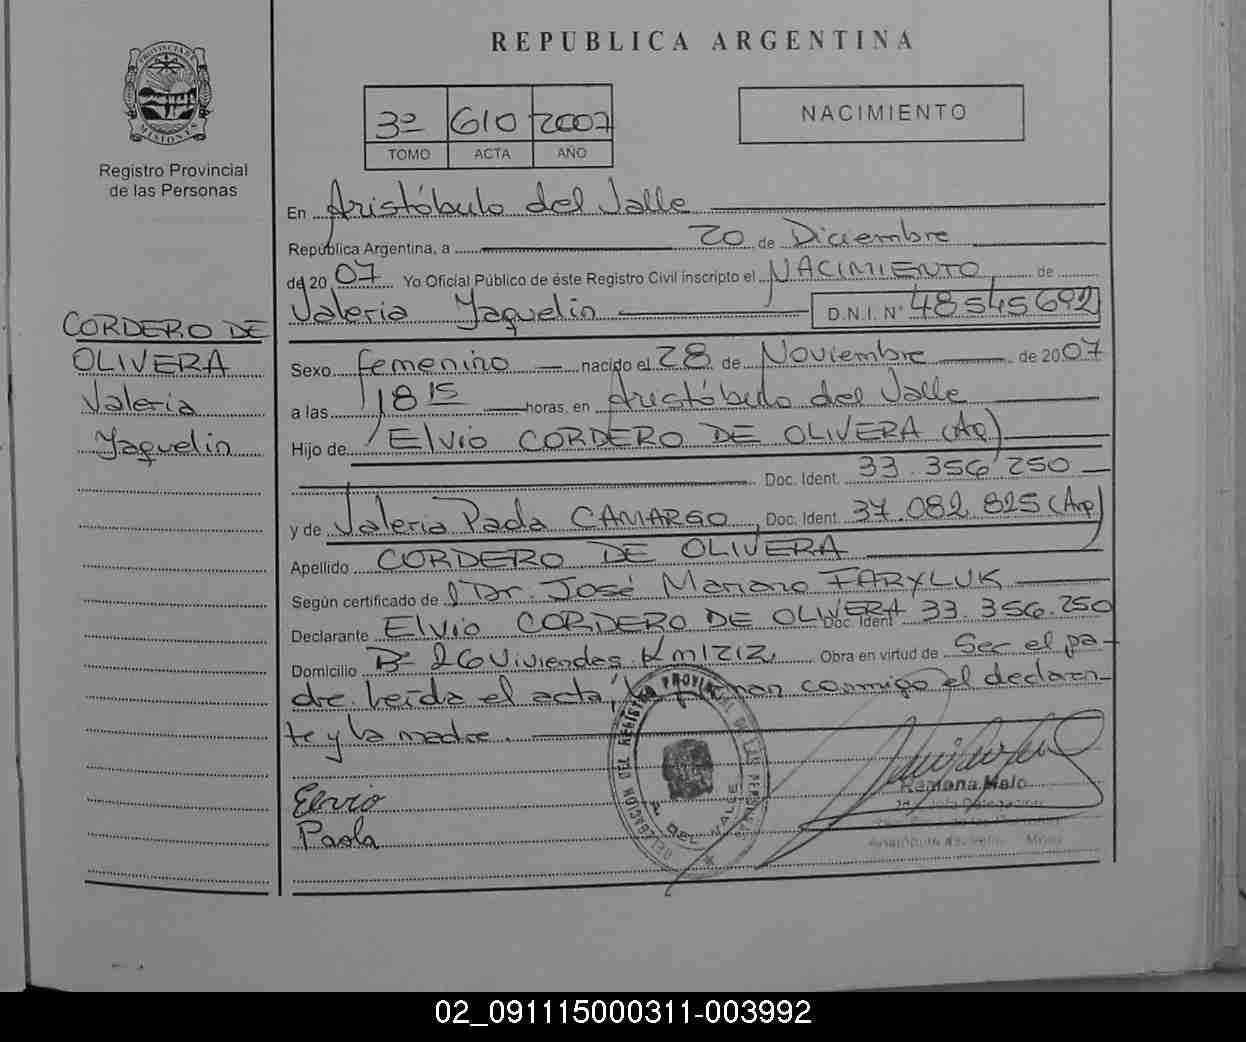 REPUBLICA ARGENTINA
PROVINCIA DE
MISIONES
Registro Provincial
de las Personas
3º 610 2007
TOMO ACTA AÑO
NACIMIENTO
En Aristóbulo del Valle
República Argentina, a 20 de Diciembre
de 20 07 Yo Oficial Público de éste Registro Civil inscripto el NACIMIENTO, de
Valeria Yaquelin D.N.I. Nº 48545692
CORDERO DE
OLIVERA
Valeria
Yaquelin
Sexo femenino nacido el 28 de Noviembre de 2007
a las 18 15 horas, en Aristóbulo del Valle
Hijo de Elvio CORDERO DE OLIVERA (Ar)
Doc. Ident. 33.356.250
y de Valeria Paola CAMARGO, Doc. Ident. 37.082.825 (Arg)
Apellido CORDERO DE OLIVERA
Según certificado de Dr. José Mariano FARYLUK
Declarante Elvio CORDERO DE OLIVERA Doc. Ident 33.356.250
Domicilio Bº 26 Viviendas, Km 1212, Obra en virtud de Ser el pa-
dre. Leída el acta, la firman conmigo el declaran-
te y la madre.
Elvio
Paola
DELEGACION DEL REGISTRO PROVINCIAL DE LAS PERSONAS
A DEL VALLE
Ramona Melo
02_091115000311-003992